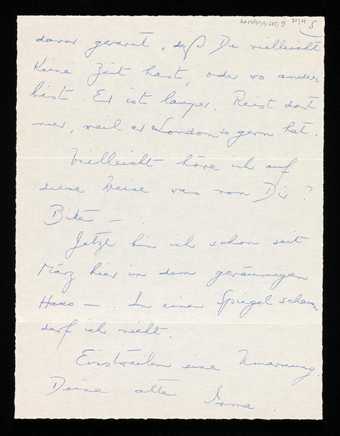 davor gewarnt, daß Du vielleicht
keine Zeit hast, oder wo anders
bist. Er ist Reist dort
nur, weil er London so gern hat.
Vielleicht höre ich auf
diese Weise was von Dir?
Bitte –
Jetzt bin ich schon seit
März hier in dem geräumigen
Haus – In einen Spiegel schauen
darf ich nicht.
Einstweilen eine Umarmung.
Deine alte